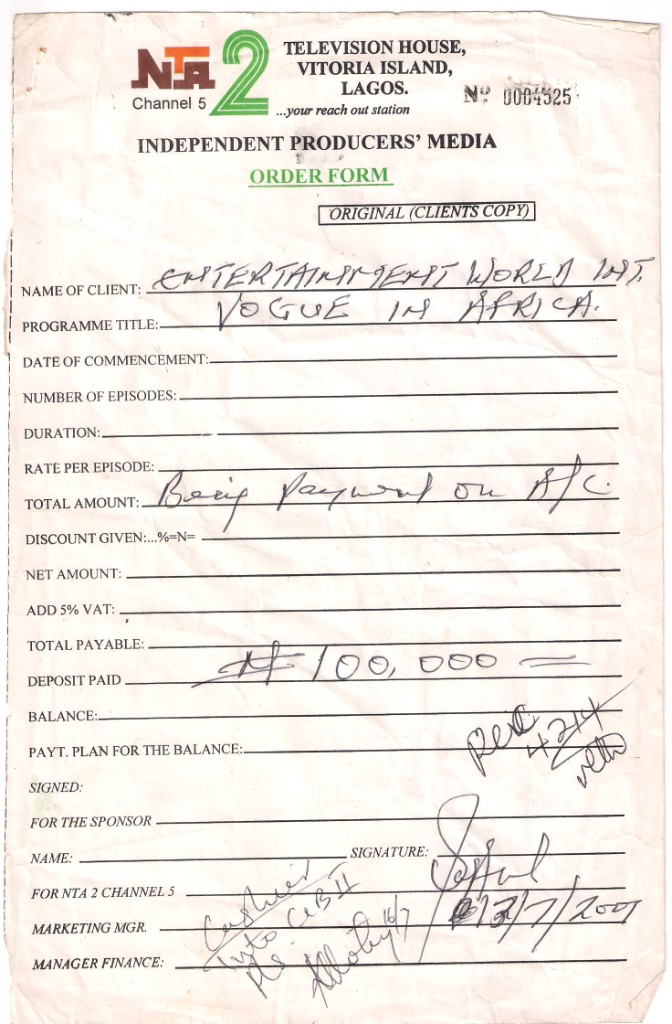 NTA 2
Channel 5
TELEVISION HOUSE,
VITORIA ISLAND,
LAGOS.
...your reach out station
Nº 0004525
INDEPENDENT PRODUCERS' MEDIA
ORDER FORM
ORIGINAL (CLIENTS COPY)
NAME OF CLIENT: ENTERTAINMENT WORLD INT.
PROGRAMME TITLE: VOGUE IN AFRICA.
DATE OF COMMENCEMENT:
NUMBER OF EPISODES:
DURATION:
RATE PER EPISODE:
TOTAL AMOUNT: Being Payment on A/C.
DISCOUNT GIVEN:...%=N=
NET AMOUNT:
ADD 5% VAT:
TOTAL PAYABLE:
DEPOSIT PAID ₦ 100,000 =
BALANCE:
PAYT. PLAN FOR THE BALANCE:
SIGNED:
FOR THE SPONSOR
NAME: SIGNATURE:
FOR NTA 2 CHANNEL 5
Cashier
MARKETING MGR. into CB II 16/7
Pls.
MANAGER FINANCE: